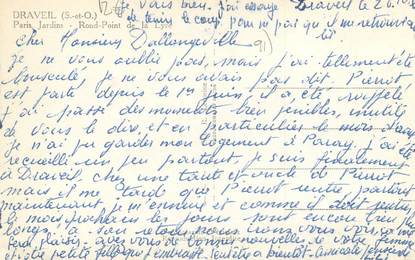 DRAVEIL (S.-et-O.)
Paris Jardins - Rond-Point de la Lyre
Je vais bien. J'ai essayé
de tenir le coup pour ne pas qu'il me retrouve au
lit
Draveil le 20.10
Cher Monsieur Dallongeville
91
Je ne vous oublie pas, mais j'ai tellement été
bousculé, je ne vous avais pas dit. Pierrot
est parti depuis le 1er Juin, il a été rappelé
j'ai passé des moments bien pénibles, inutile
de vous le dire, et en particulier le mois d'août
je n'ai pu garder mon logement à Paray. J'ai été
recueilli un peu partout, je suis finalement
à Draveil chez une tante et oncle de Pierrot
mais il me tarde que Pierrot rentre, partout
maintenant, je m'ennuie et comme il doit rentrer
le mois prochain les jours sont encore bien plus
longs, à son retour nous irons vous voir ça me
fera plaisir. avez vous de bonnes nouvelles de votre femme
et votre petite fille que j'embrasse. Peut être à bientôt. Amicale